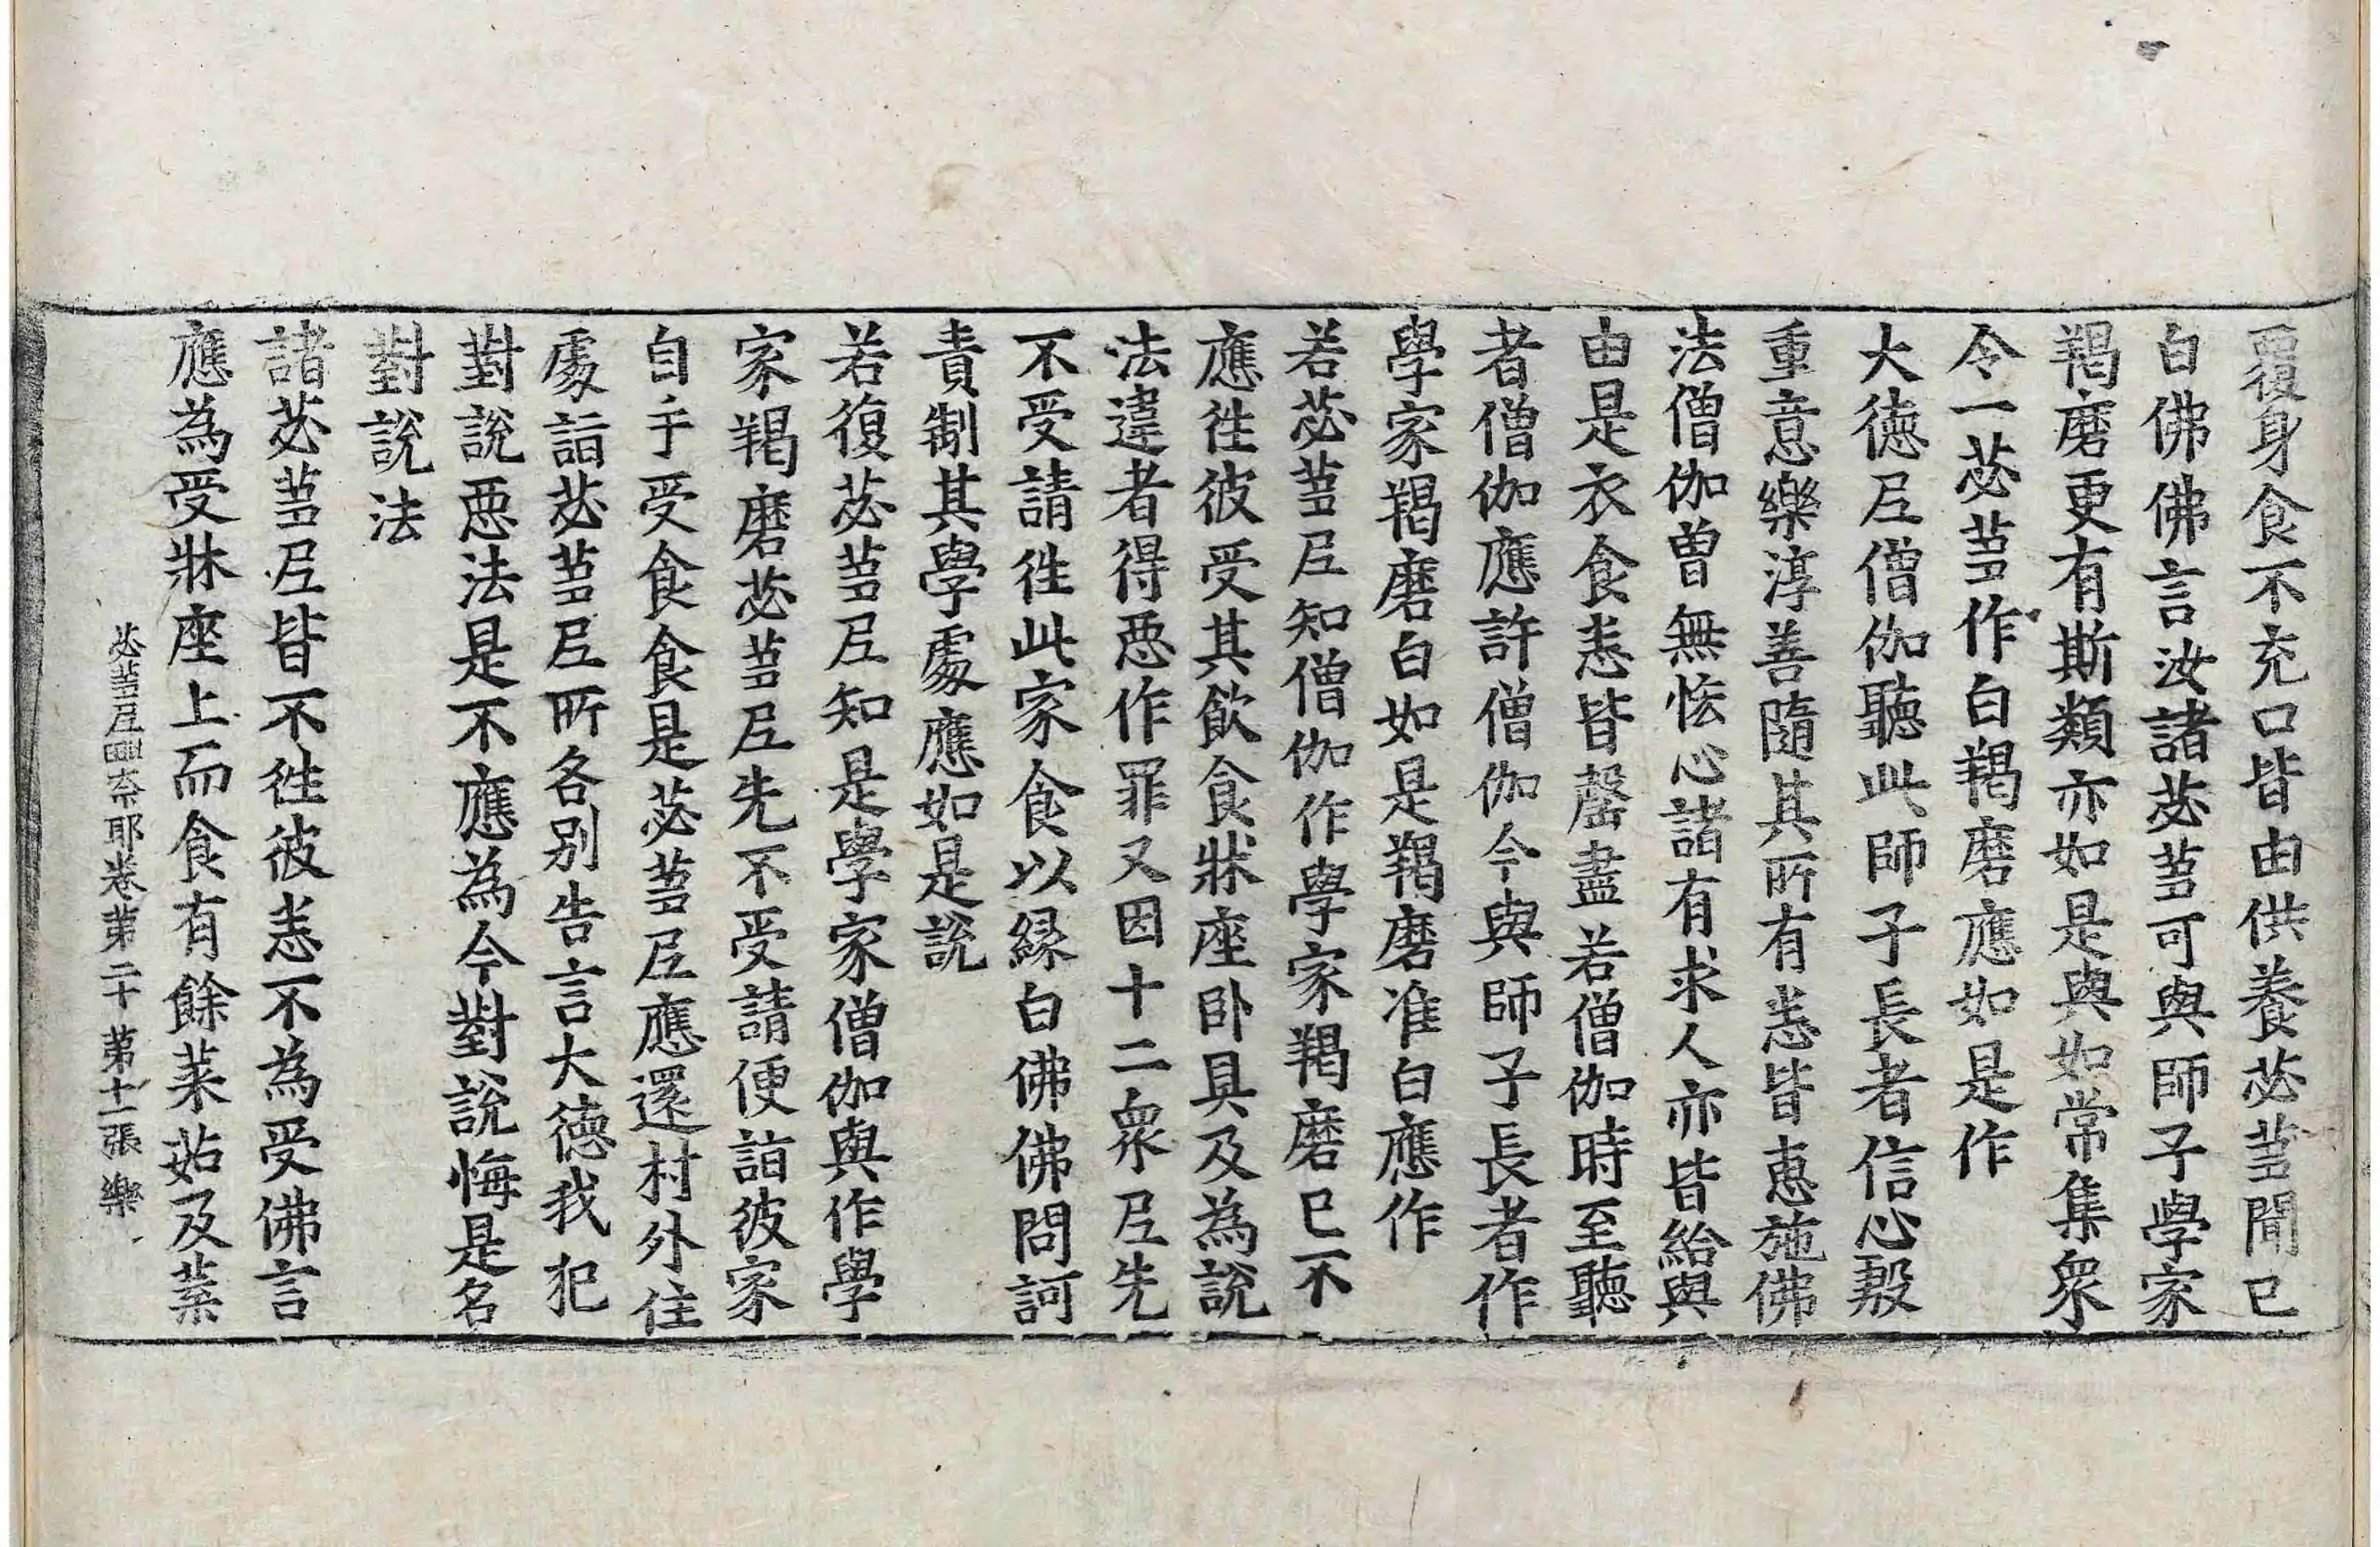 覆身食不充口皆由供養苾蒭聞已
白佛佛言汝諸苾蒭可與師子學家
羯磨更有斯類亦如是與如常集衆
令一苾蒭作白羯磨應如是作
大德尼僧伽聽此師子長者信心殷
重意樂淳善隨其所有悉皆惠施佛
法僧伽曾無悋心諸有求人亦皆給與
由是衣食悉皆罄盡若僧伽時至聽
者僧伽應許僧伽今與師子長者作
學家羯磨白如是羯磨准白應作
若苾蒭尼知僧伽作學家羯磨已不
應往彼受其飲食牀座卧具及為說
法違者得惡作罪又因十二衆尼先
不受請往此家食以緣白佛佛問訶
責制其學處應如是說
若復苾蒭尼知是學家僧伽與作學
家羯磨苾蒭尼先不受請便詣彼家
自手受食食是苾蒭尼應還村外住
處詣苾蒭尼所各別告言大德我犯
對說惡法是不應為今對說悔是名
對說法
諸苾蒭尼皆不往彼悉不為受佛言
應為受牀座上而食有餘菜茹及葉
苾蒭尼毗奈耶卷第二十 第十一張 樂